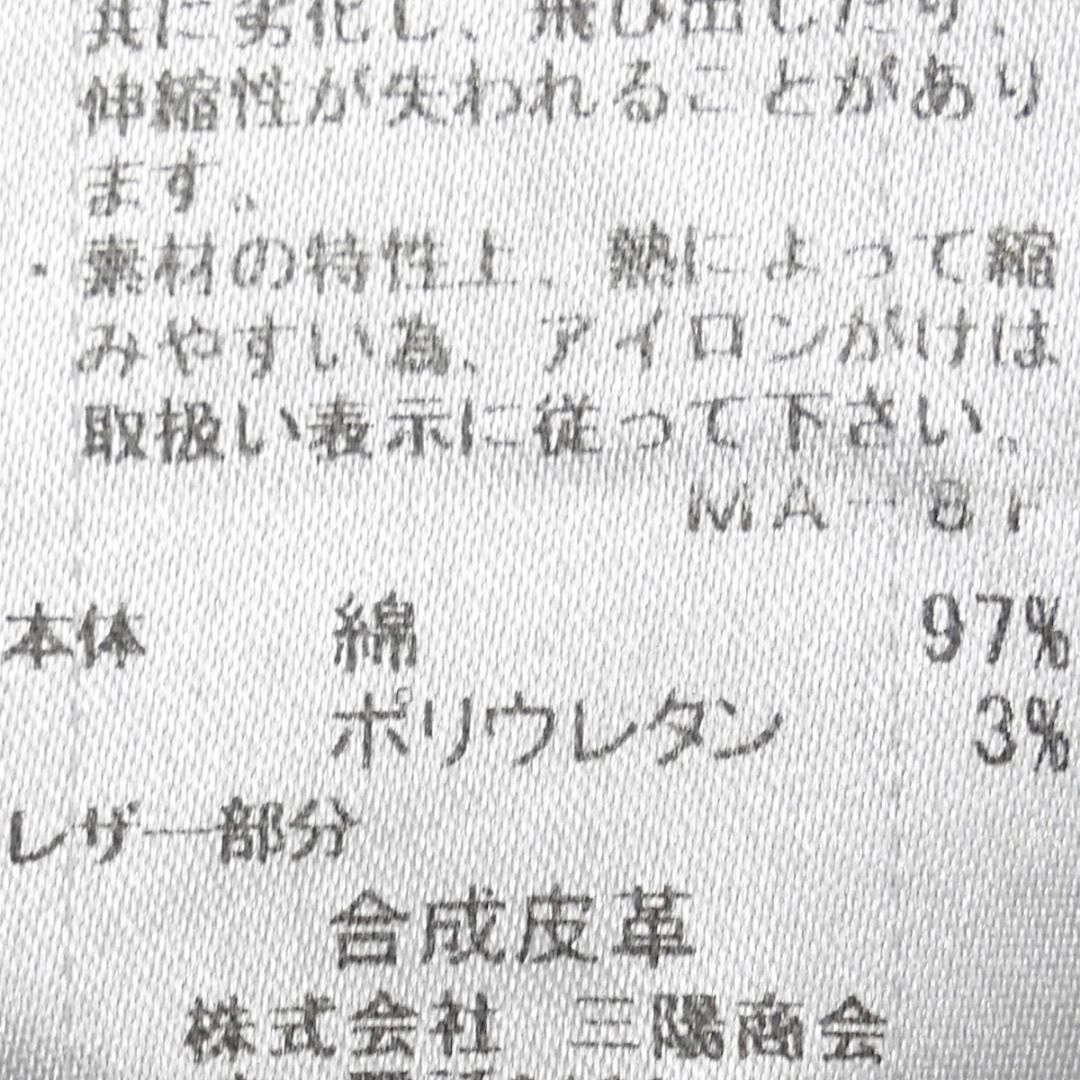 共に劣化し、飛び出したり、
伸縮性が失われることがあり
ます。
・素材の特性上、熱によって縮
みやすい為、アイロンがけは
取扱い表示に従って下さい。
MA-8
本体 綿 97%
ポリウレタン 3%
レザー部分
合成皮革
株式会社 三陽商会